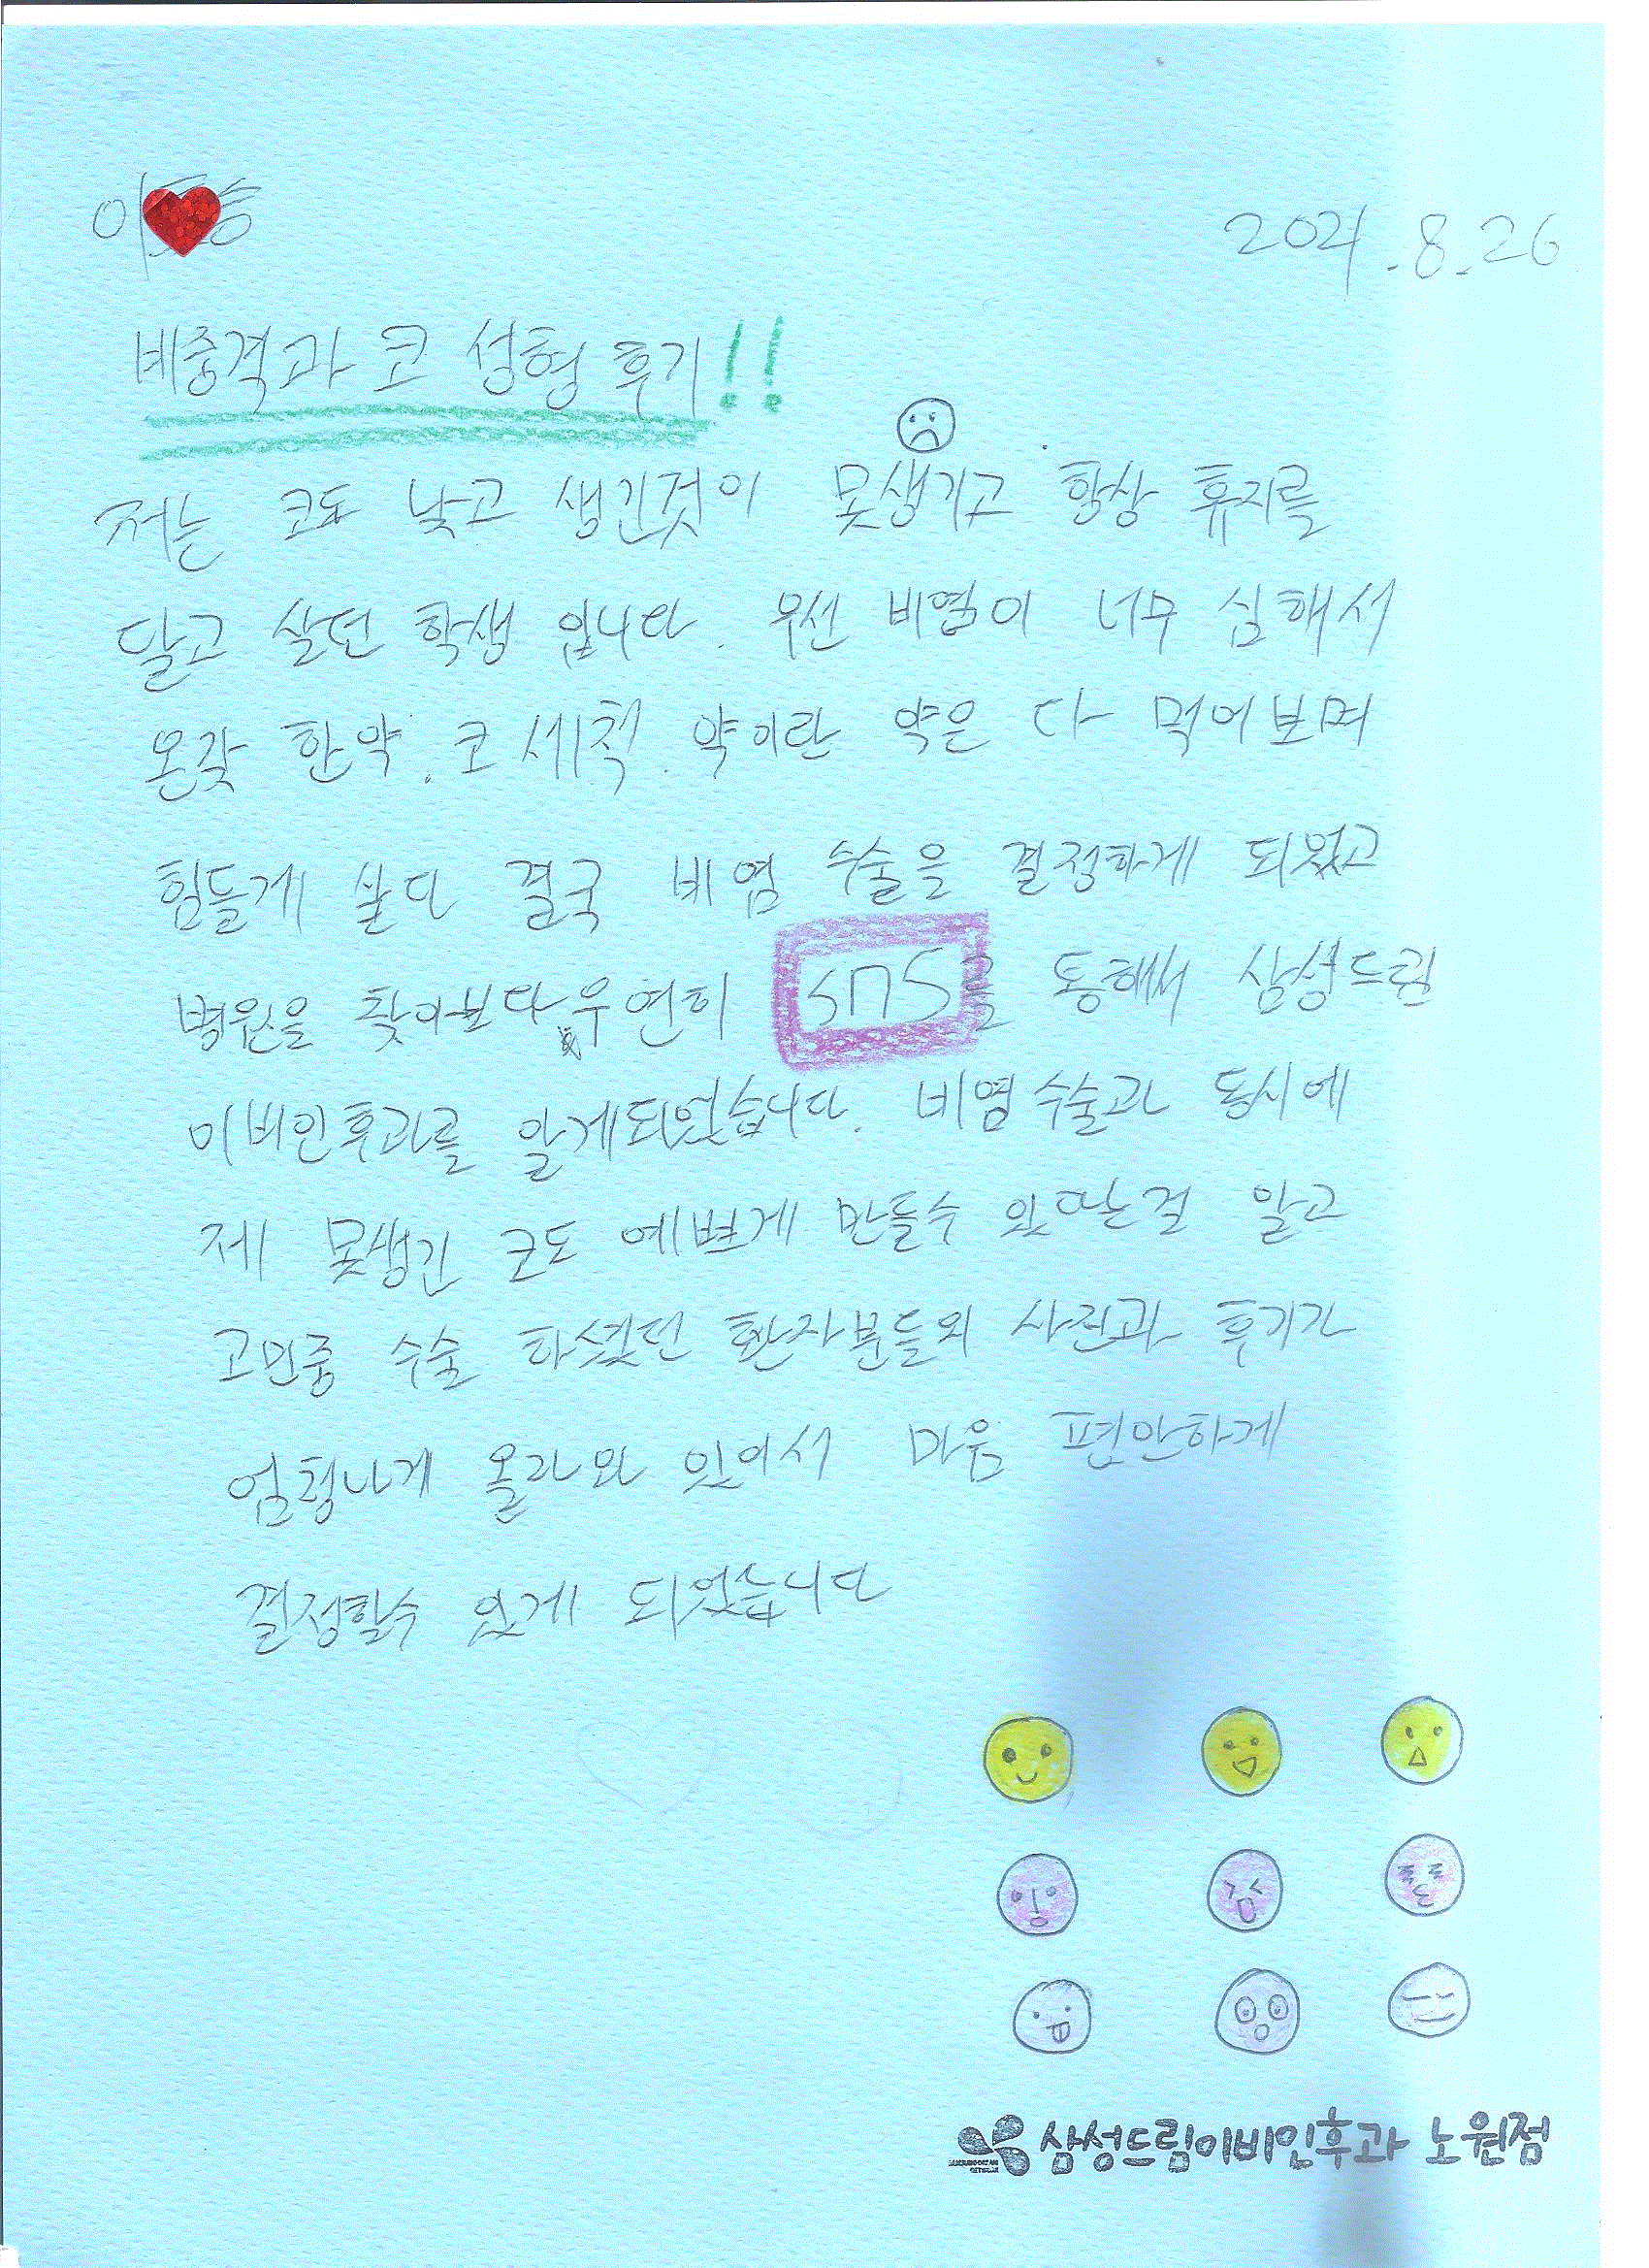 이
2021.8.26
비중격과 코 성형 후기!!
저는 코도 낮고 생긴것이 못생기고 항상 휴지를
달고 살던 학생 입니다. 우선 비염이 너무 심해서
온갖 한약. 코 세척. 약이란 약은 다 먹어보며
힘들게 살다 결국 비염 수술을 결정하게 되었고
병원을 찾아보다 우연히 SNS를 통해서 삼성드림
이비인후과를 알게되었습니다. 비염수술과 동시에
제 못생긴 코도 예쁘게 만들수 있다는걸 알고
고민중 수술 하셨던 환자분들의 사진과 후기가
엄청나게 올라와 있어서 마음 편안하게
결정할수 있게 되었습니다
삼성드림이비인후과 노원점